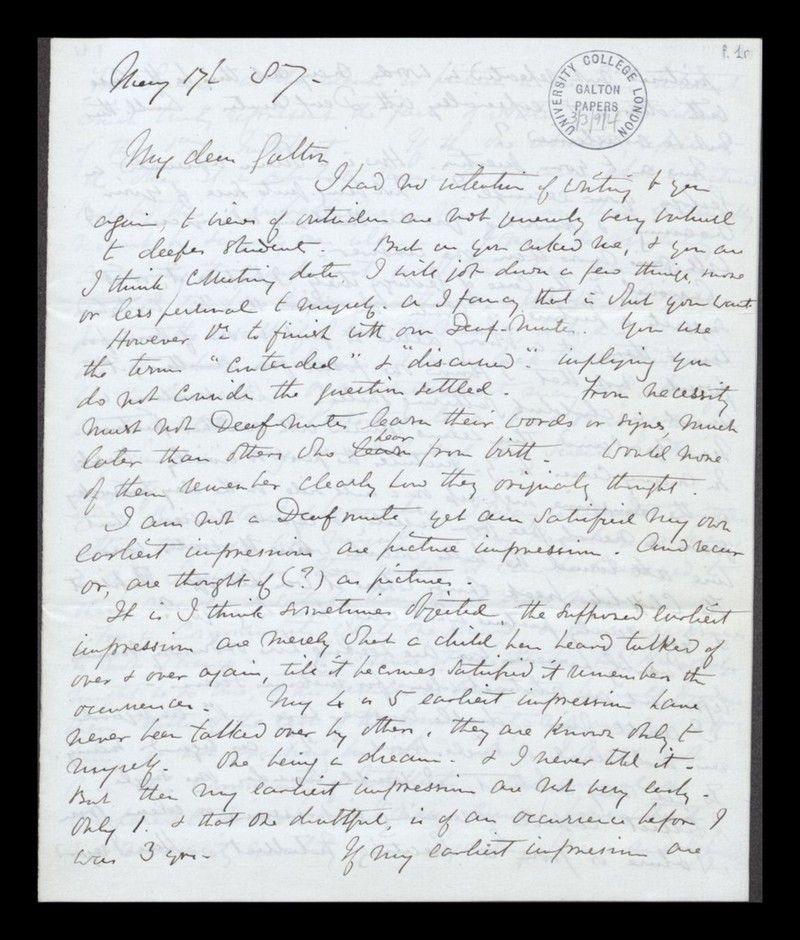 P. 1r
UNIVERSITY COLLEGE LONDON
GALTON
PAPERS
3/3/9/4
May 17th 87.
My dear Galton
I had no intention of writing to you
again, to views of outsiders are not generally very
to deeper student. But as you asked me, & you are
I think collecting data, I will jot down a few things, more
or less personal to myself. as I fancy that is what you want
However 1st to finish with our Deaf-Mutes. You use
the terms "contended" & "discussed". implying you
do not consider the question settled. From necessity
must not Deaf-Mutes learn their words or signs, much
later than others who learn hear from birth. Would none
of them remember clearly how they originally thought.
I am not a Deaf mute, yet am satisfied my own
earliest impressions are picture impression. And recur
or, are thought of (?) as pictures.
It is I think sometimes objected, the supposed earliest
impression are merely what a child has heard talked of
over & over again, till it becomes satisfied it remembers the
occurrences. My 4 or 5 earliest impression have
never been talked over by others, they are known only to
myself. One being a dream. & I never told it.
But then my earliest impression are not very early.
Only 1. & that one doubtful, is of an occurrence before I
was 3 yrs. If my earliest impression are